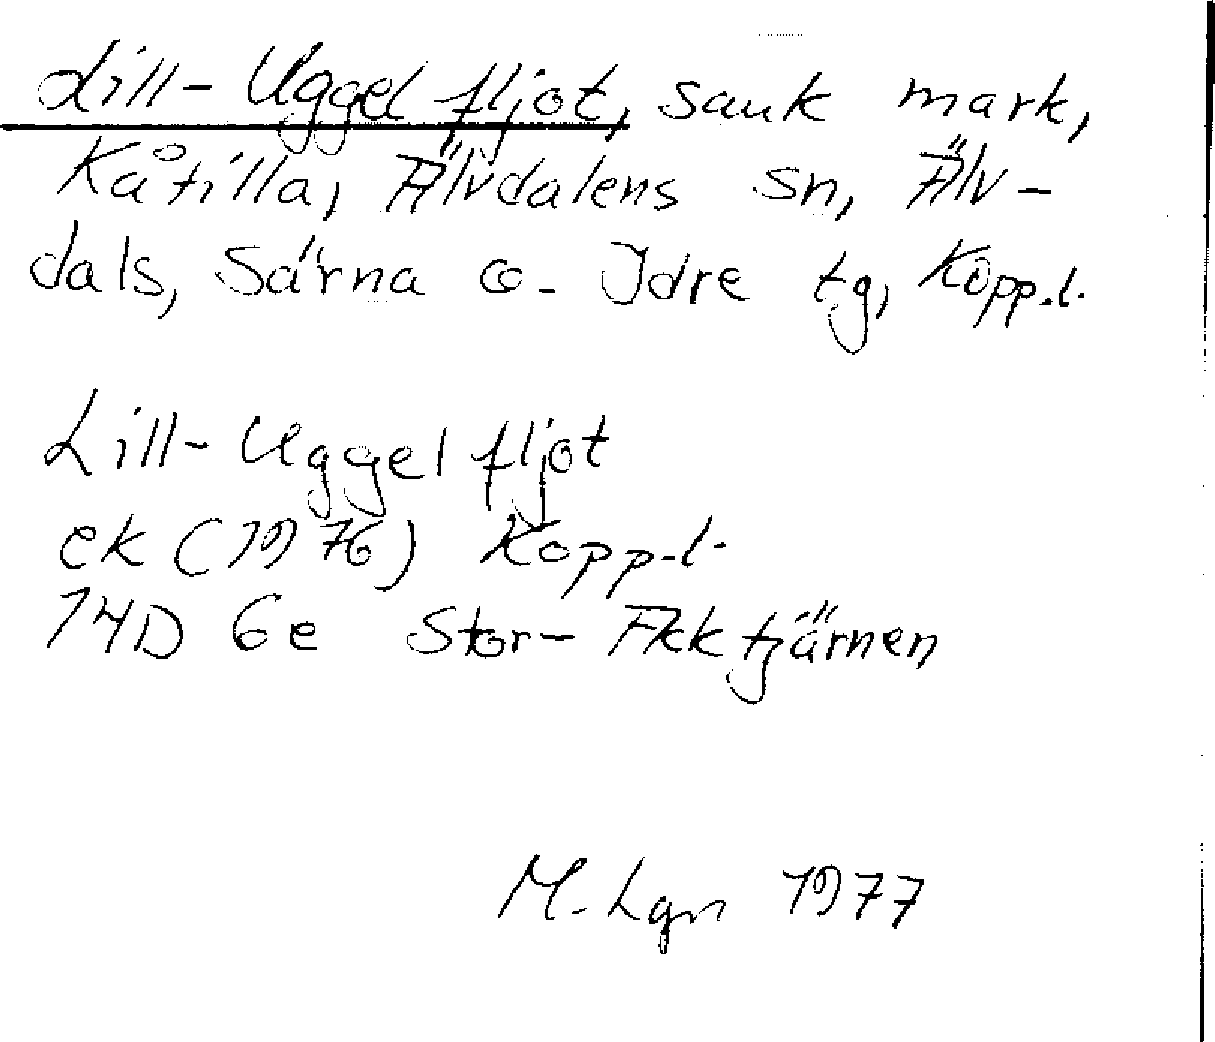 Lill-Uggelfljot, sank mark,
Kåtilla, Älvdalens sn, Älv-
dals, Särna o. Idre tg, Kopp.l.
Lill-Uggelfljot
ek (1976) Kopp.l.
14D 6e Stor-Fkktjärnen
M. Lgn 1977